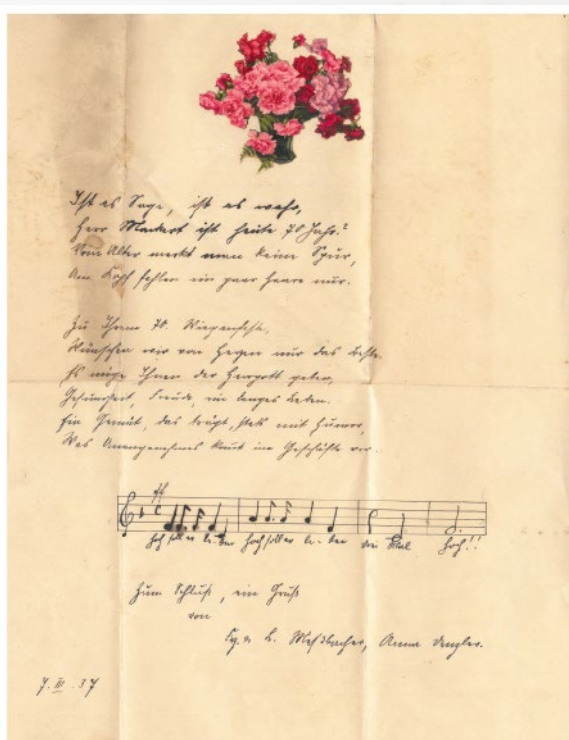 Ist es Sage, ist es wahr,
Herr Mackert ist heute 70 Jahr?
Vom Alter merkt man keine Spur,
Am Kopf fehlen ein paar Haare nur.
Zu Ihrem 70. Wiegenfeste,
Wünschen wir von Herzen nur das Beste.
Es möge Ihnen der Herrgott geben,
Gesundheit, Freude, ein langes Leben.
Ein Gemüt, das trägt, stets mit Humor,
Was Unangenehmes kommt im Geschäfte vor.
ff
hoch soll er le-ben hoch soll er le-ben drei Mal hoch!!
Zum Schluß, ein Gruß
von
L. Anna
7. III. 37